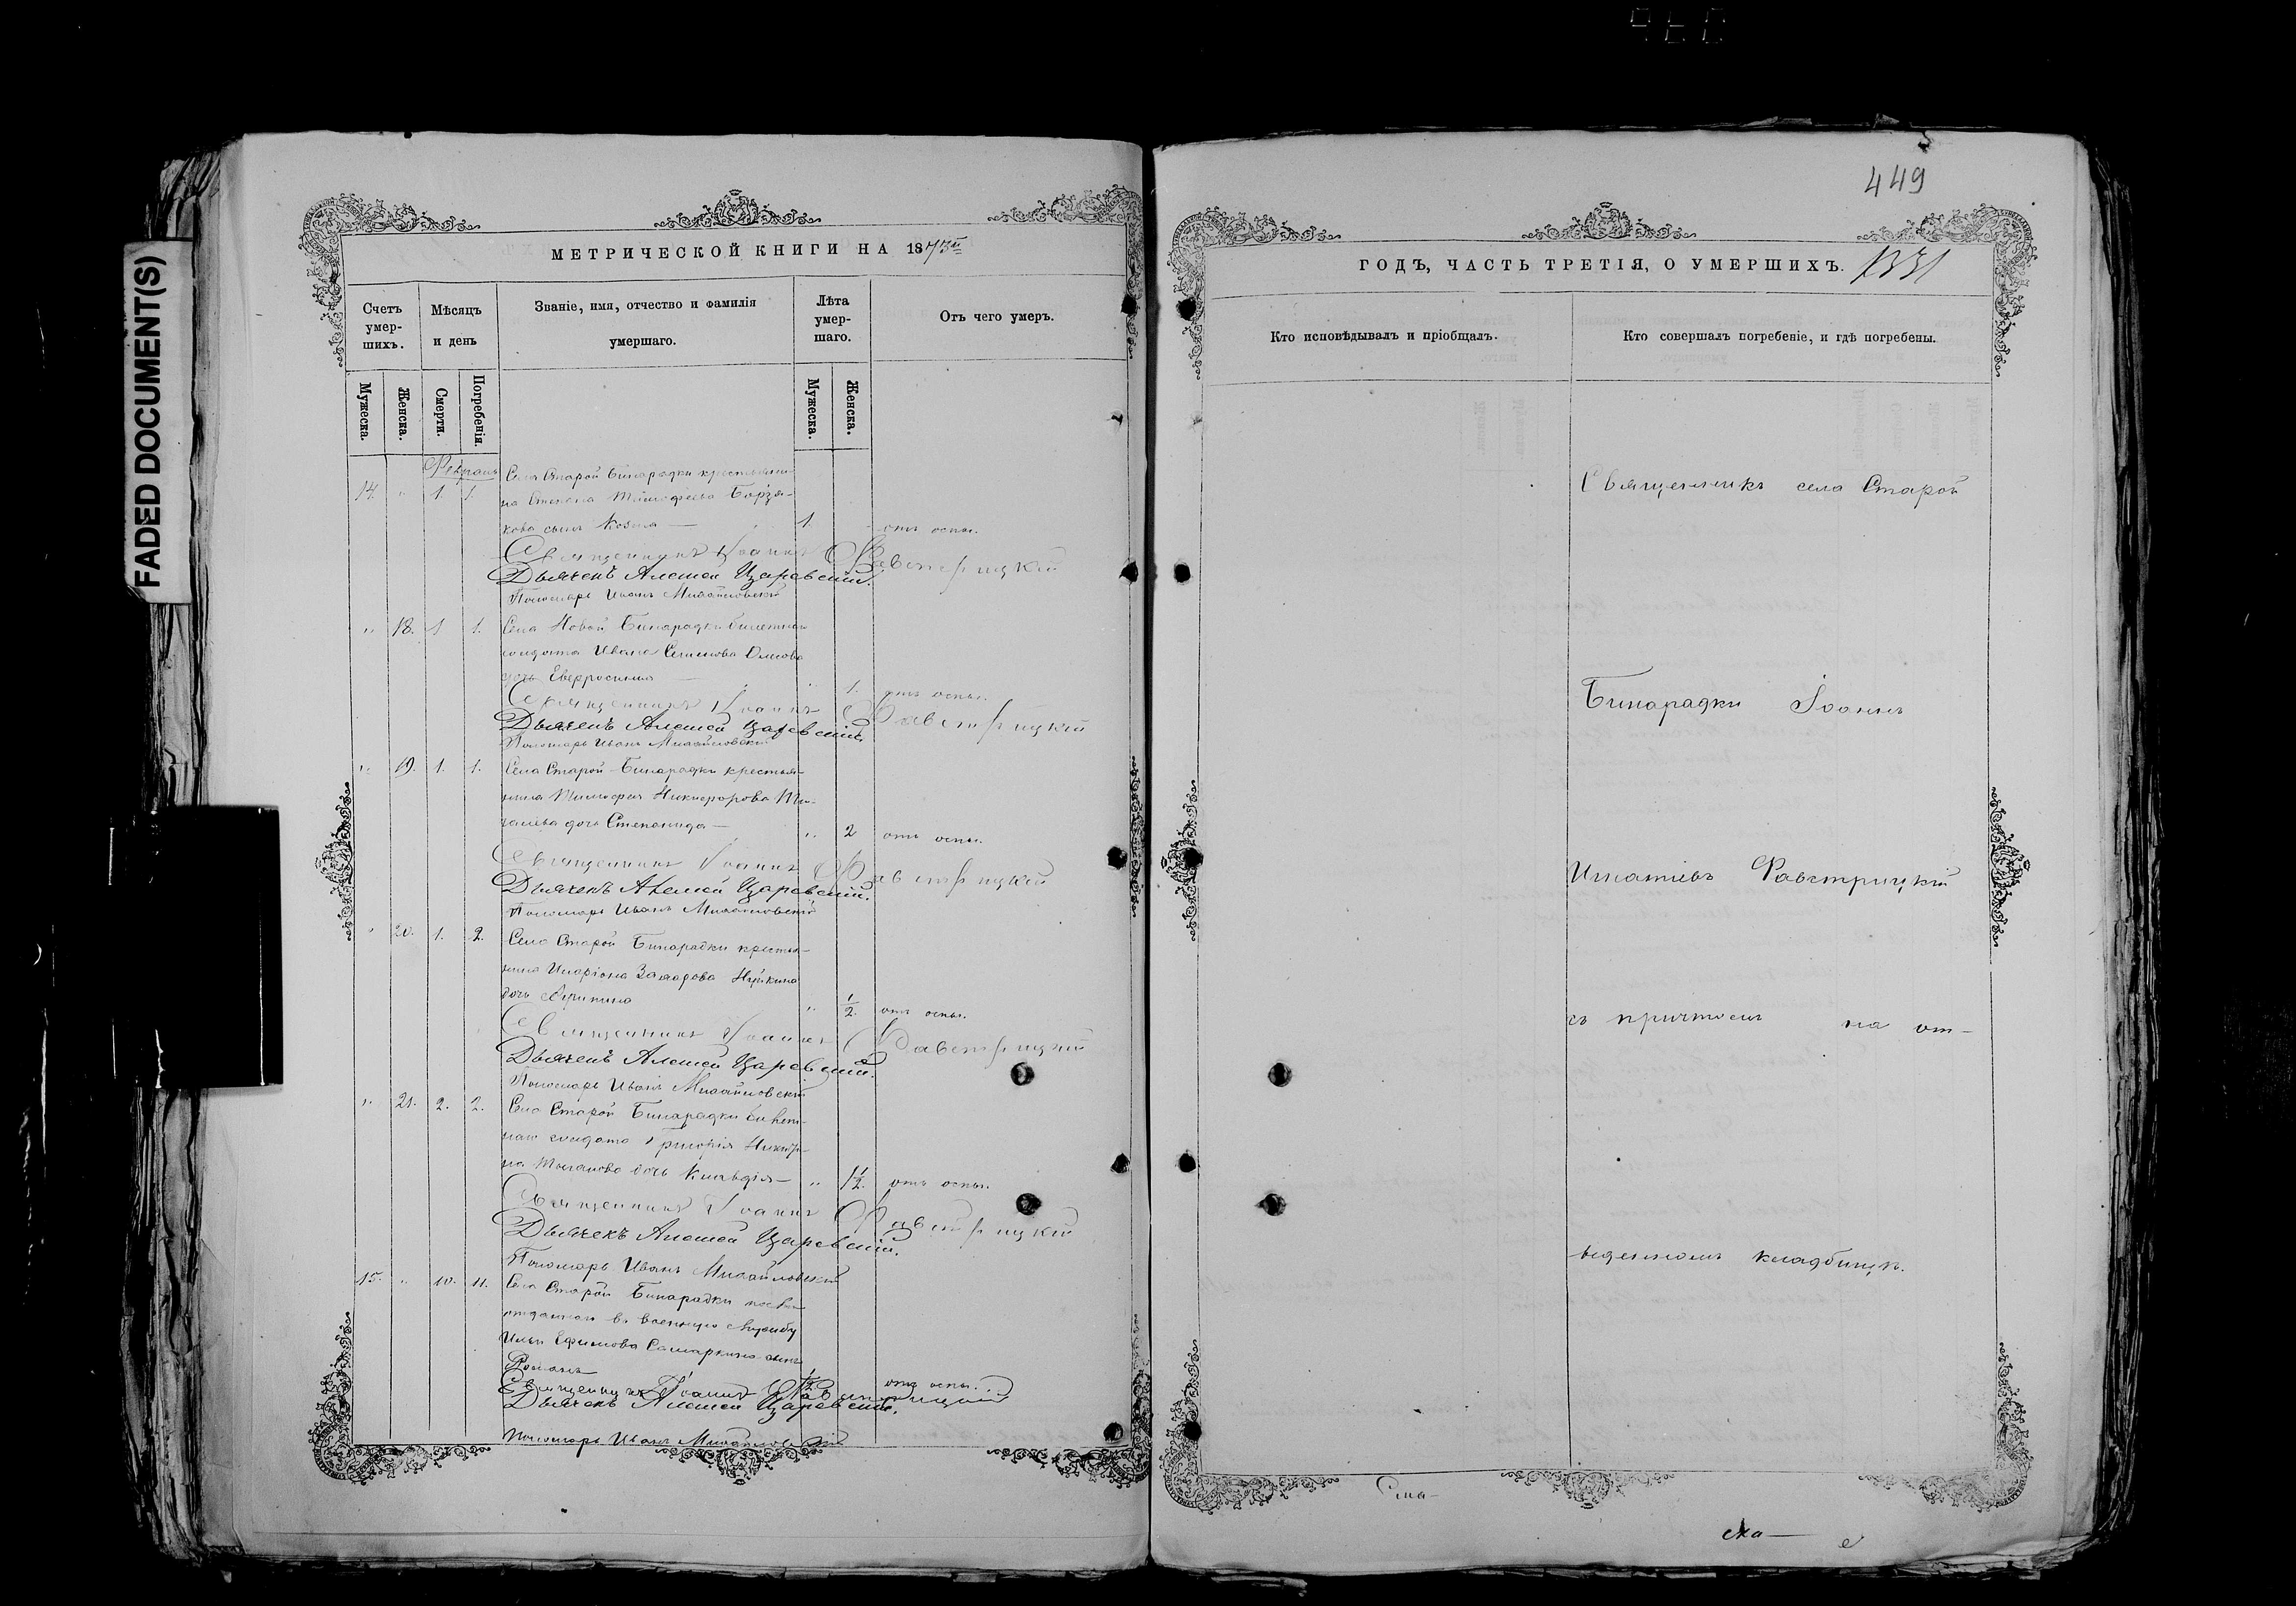 FADED DOCUMENT(S)
МЕТРИЧЕСКОЙ КНИГИ НА 1873й
Счетъ умер-шихъ.
Мѣсяцъ и день
Званіе, имя, отчество и фамилія умершаго.
Лѣта умер-шаго.
Отъ чего умеръ.
Мужеска.
Женска.
Смерти.
Погребенія.
Мужеска.
Женска.
Февраль
14. " 1. 1. Села Старой Бинарадки крестьяни-
на Степана Тимофеева Борзя-
кова сынъ Козма — 1. отъ оспы.
Священникъ Іоаннъ Фавстрицкій
Дьячекъ Алексей Царевскій.
Пономарь Иванъ Михайловскій
" 18. 1 1. Села Новой Бинарадки билетнаго
солдата Ивана Семенова
дочь Евфросинія — " 1. отъ оспы.
Священникъ Іоаннъ Фавстрицкій
Дьячекъ Алексей Царевскій
Пономарь Иванъ Михайловскій
" 19. 1. 1. Села Старой Бинарадки крестья-
нина Тимофея Никифорова
дочь Степанида — " 2 отъ оспы.
Священникъ Іоаннъ Фавстрицкій
Дьячекъ Алексей Царевскій.
Пономарь Иванъ Михайловскій
" 20. 1. 2. Села Старой Бинарадки крестья-
нина Иларіона
дочь Агрипина " 1/2. отъ оспы.
Священникъ Іоаннъ Фавстрицкій
Дьячекъ Алексей Царевскій.
Пономарь Иванъ Михайловскій
" 21. 2. 2. Села Старой Бинарадки билет-
наго солдата Григорія
дочь Клавдія — " 1 1/2. отъ оспы.
Священникъ Іоаннъ Фавстрицкій
Дьячекъ Алексей Царевскій.
Пономарь Иванъ Михайловскій
15. " 10. 11. Села Старой Бинарадки
отданнаго въ военную службу
Ильи Ефимова Самаркина сынъ
Романъ 1/2 отъ оспы.
Священникъ Іоаннъ Фавстрицкій
Дьячекъ Алексей Царевскій.
Пономарь Иванъ Михайловскій
449
ГОДЪ, ЧАСТЬ ТРЕТІЯ, О УМЕРШИХЪ. 1331
Кто исповѣдывалъ и пріобщалъ.
Кто совершалъ погребеніе, и гдѣ погребены.
Священникъ села Старой
Бинарадки Іоаннъ
Игнатіевъ Фавстрицкій
съ причтомъ на от-
веденномъ кладбищѣ.